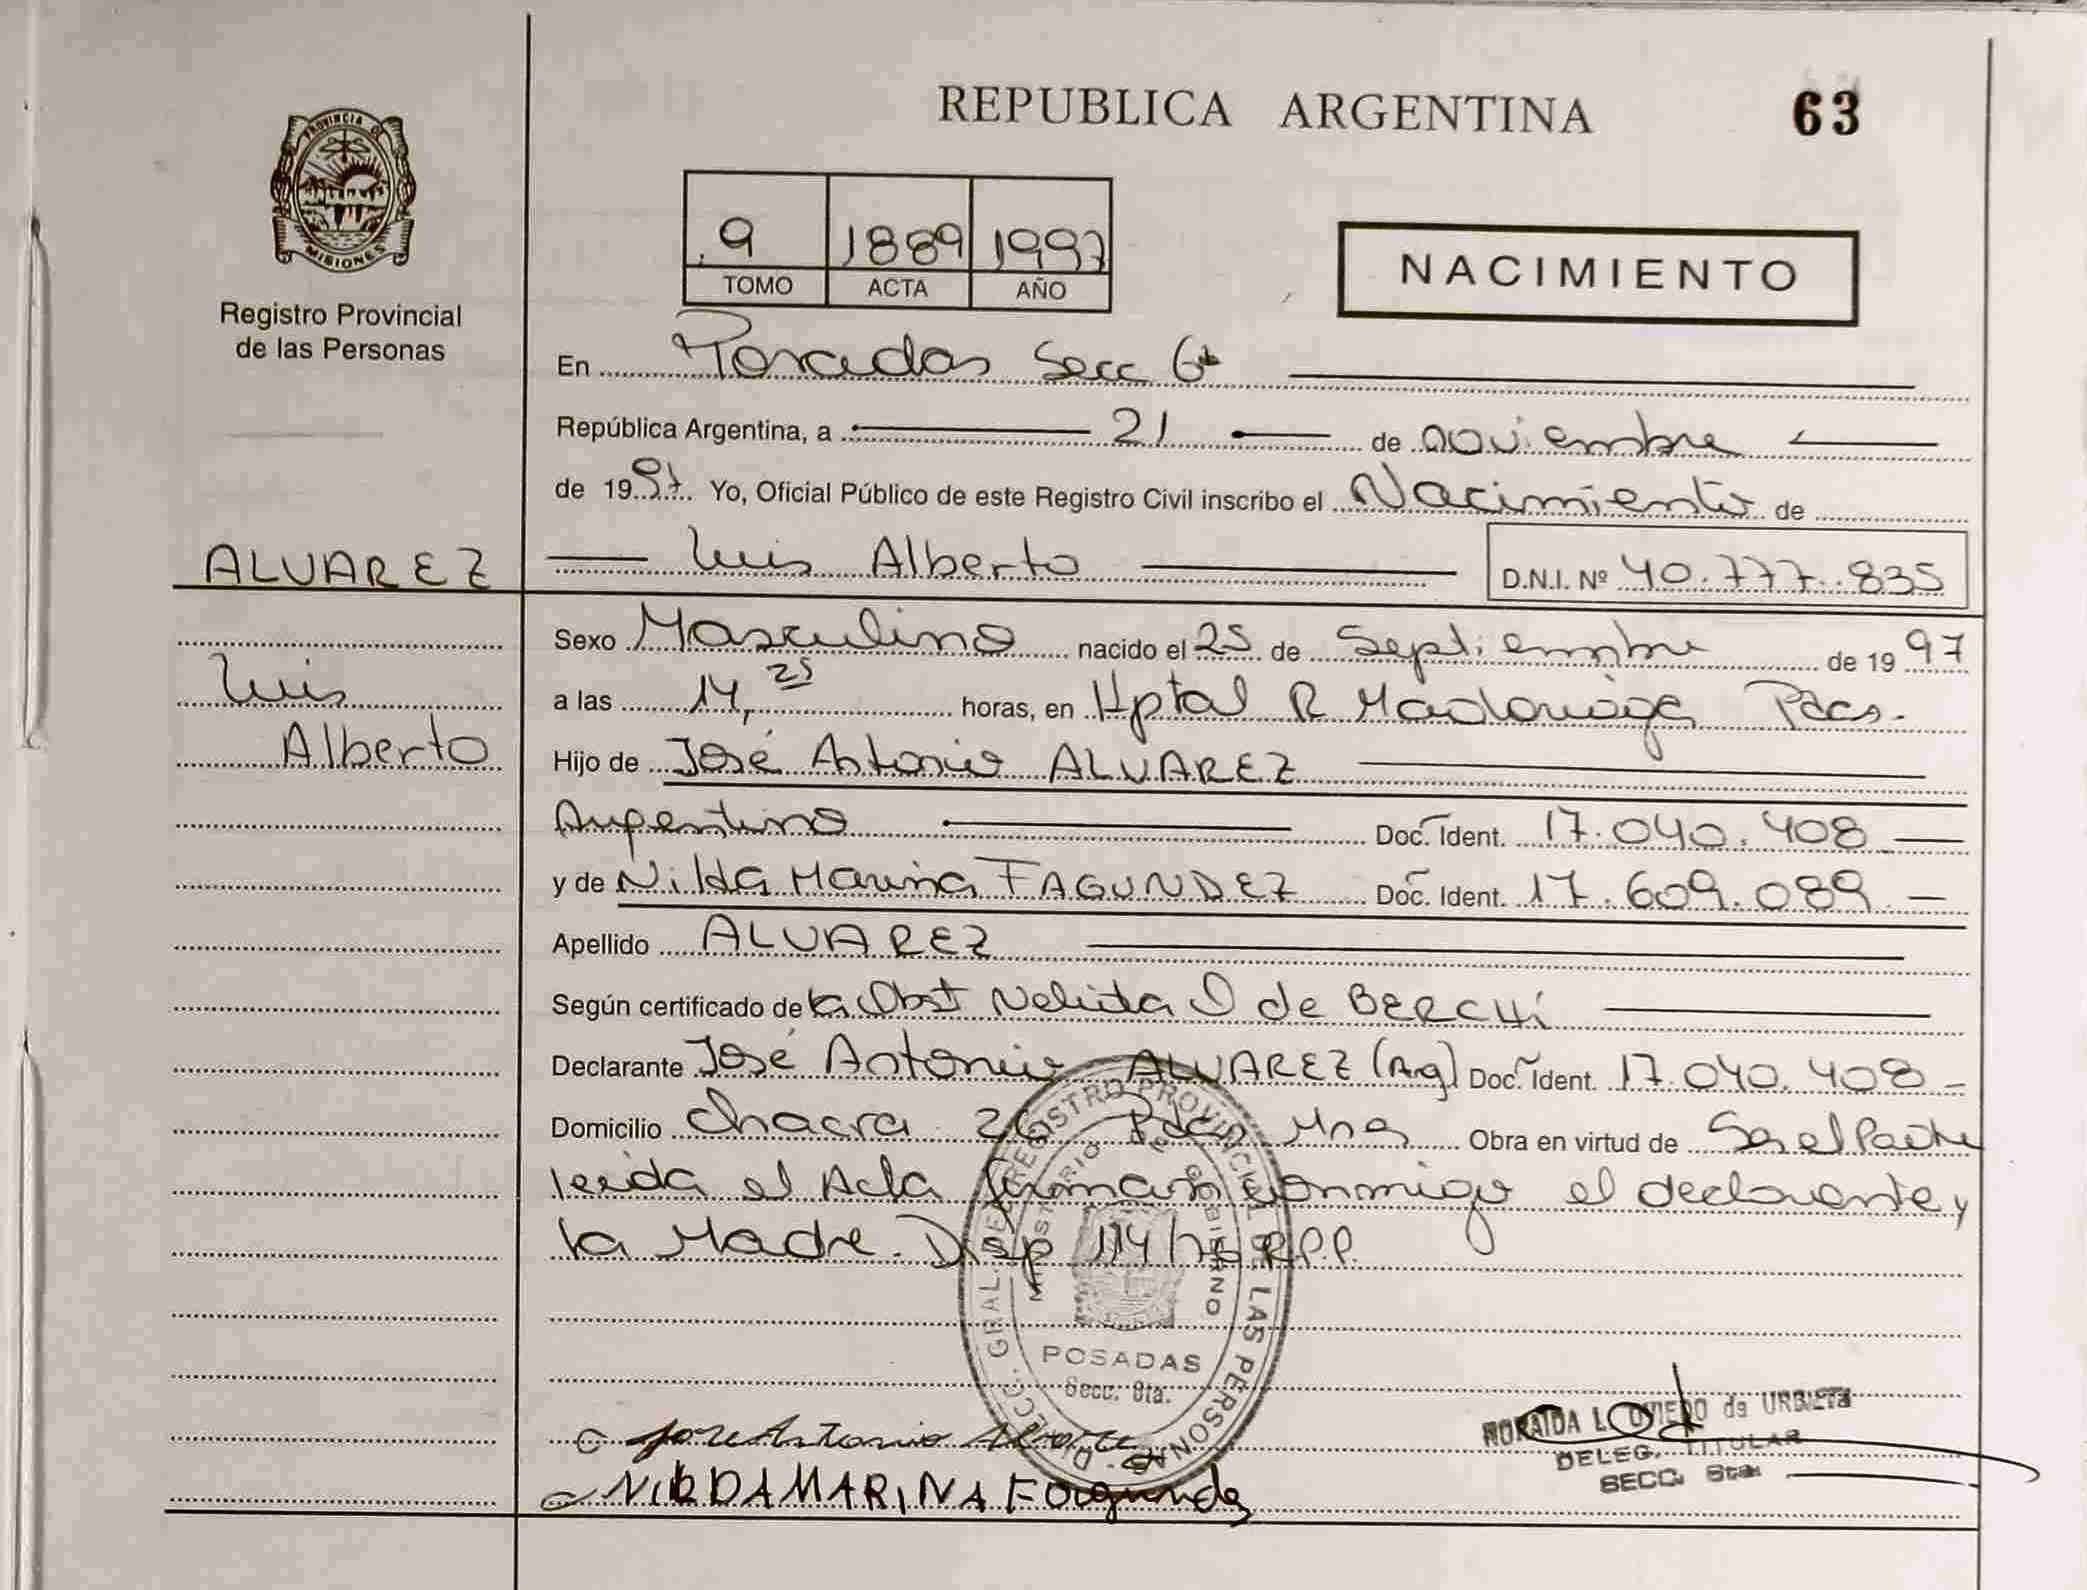 REPUBLICA ARGENTINA 63
PROVINCIA DE
MISIONES
Registro Provincial
de las Personas
9 1889 1997
TOMO ACTA AÑO
NACIMIENTO
En Posadas Secc 6ta
República Argentina, a 21 de noviembre
de 1997. Yo, Oficial Público de este Registro Civil inscribo el Nacimiento de
ALVAREZ Luis Alberto D.N.I. Nº 40.777.835
Sexo Masculino nacido el 25 de Septiembre de 1997
Luis a las 14,25 horas, en Hptal R Madariaga Pdas.
Alberto Hijo de José Antonio ALVAREZ
Argentino Doc. Ident. 17.040.408
y de Nilda Marina FAGUNDEZ Doc. Ident. 17.609.089
Apellido ALVAREZ
Según certificado de la Obst Nelida O de BERCHI
Declarante José Antonio ALVAREZ (Arg) Doc. Ident. 17.040.408
Domicilio Chacra 26 Pdas Mnes Obra en virtud de Ser el Padre
leida el Acta firman conmigo el declarante y
la Madre. Disp 114/76 R.P.P.
DIRECC. GRAL. DE REGISTRO PROVINCIAL DE LAS PERSONAS
MINISTERIO DE GOBIERNO
POSADAS
Secc. 6ta.
Jose Antonio Alvarez
NILDA MARINA Fagundez
NORAIDA L. OVIEDO de URBIETA
DELEG. TITULAR
SECC. 6ta.